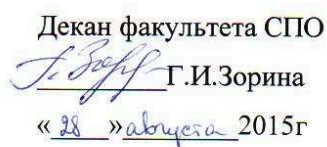 Декан факультета СПО
Г.И.Зорина
«28» августа 2015г